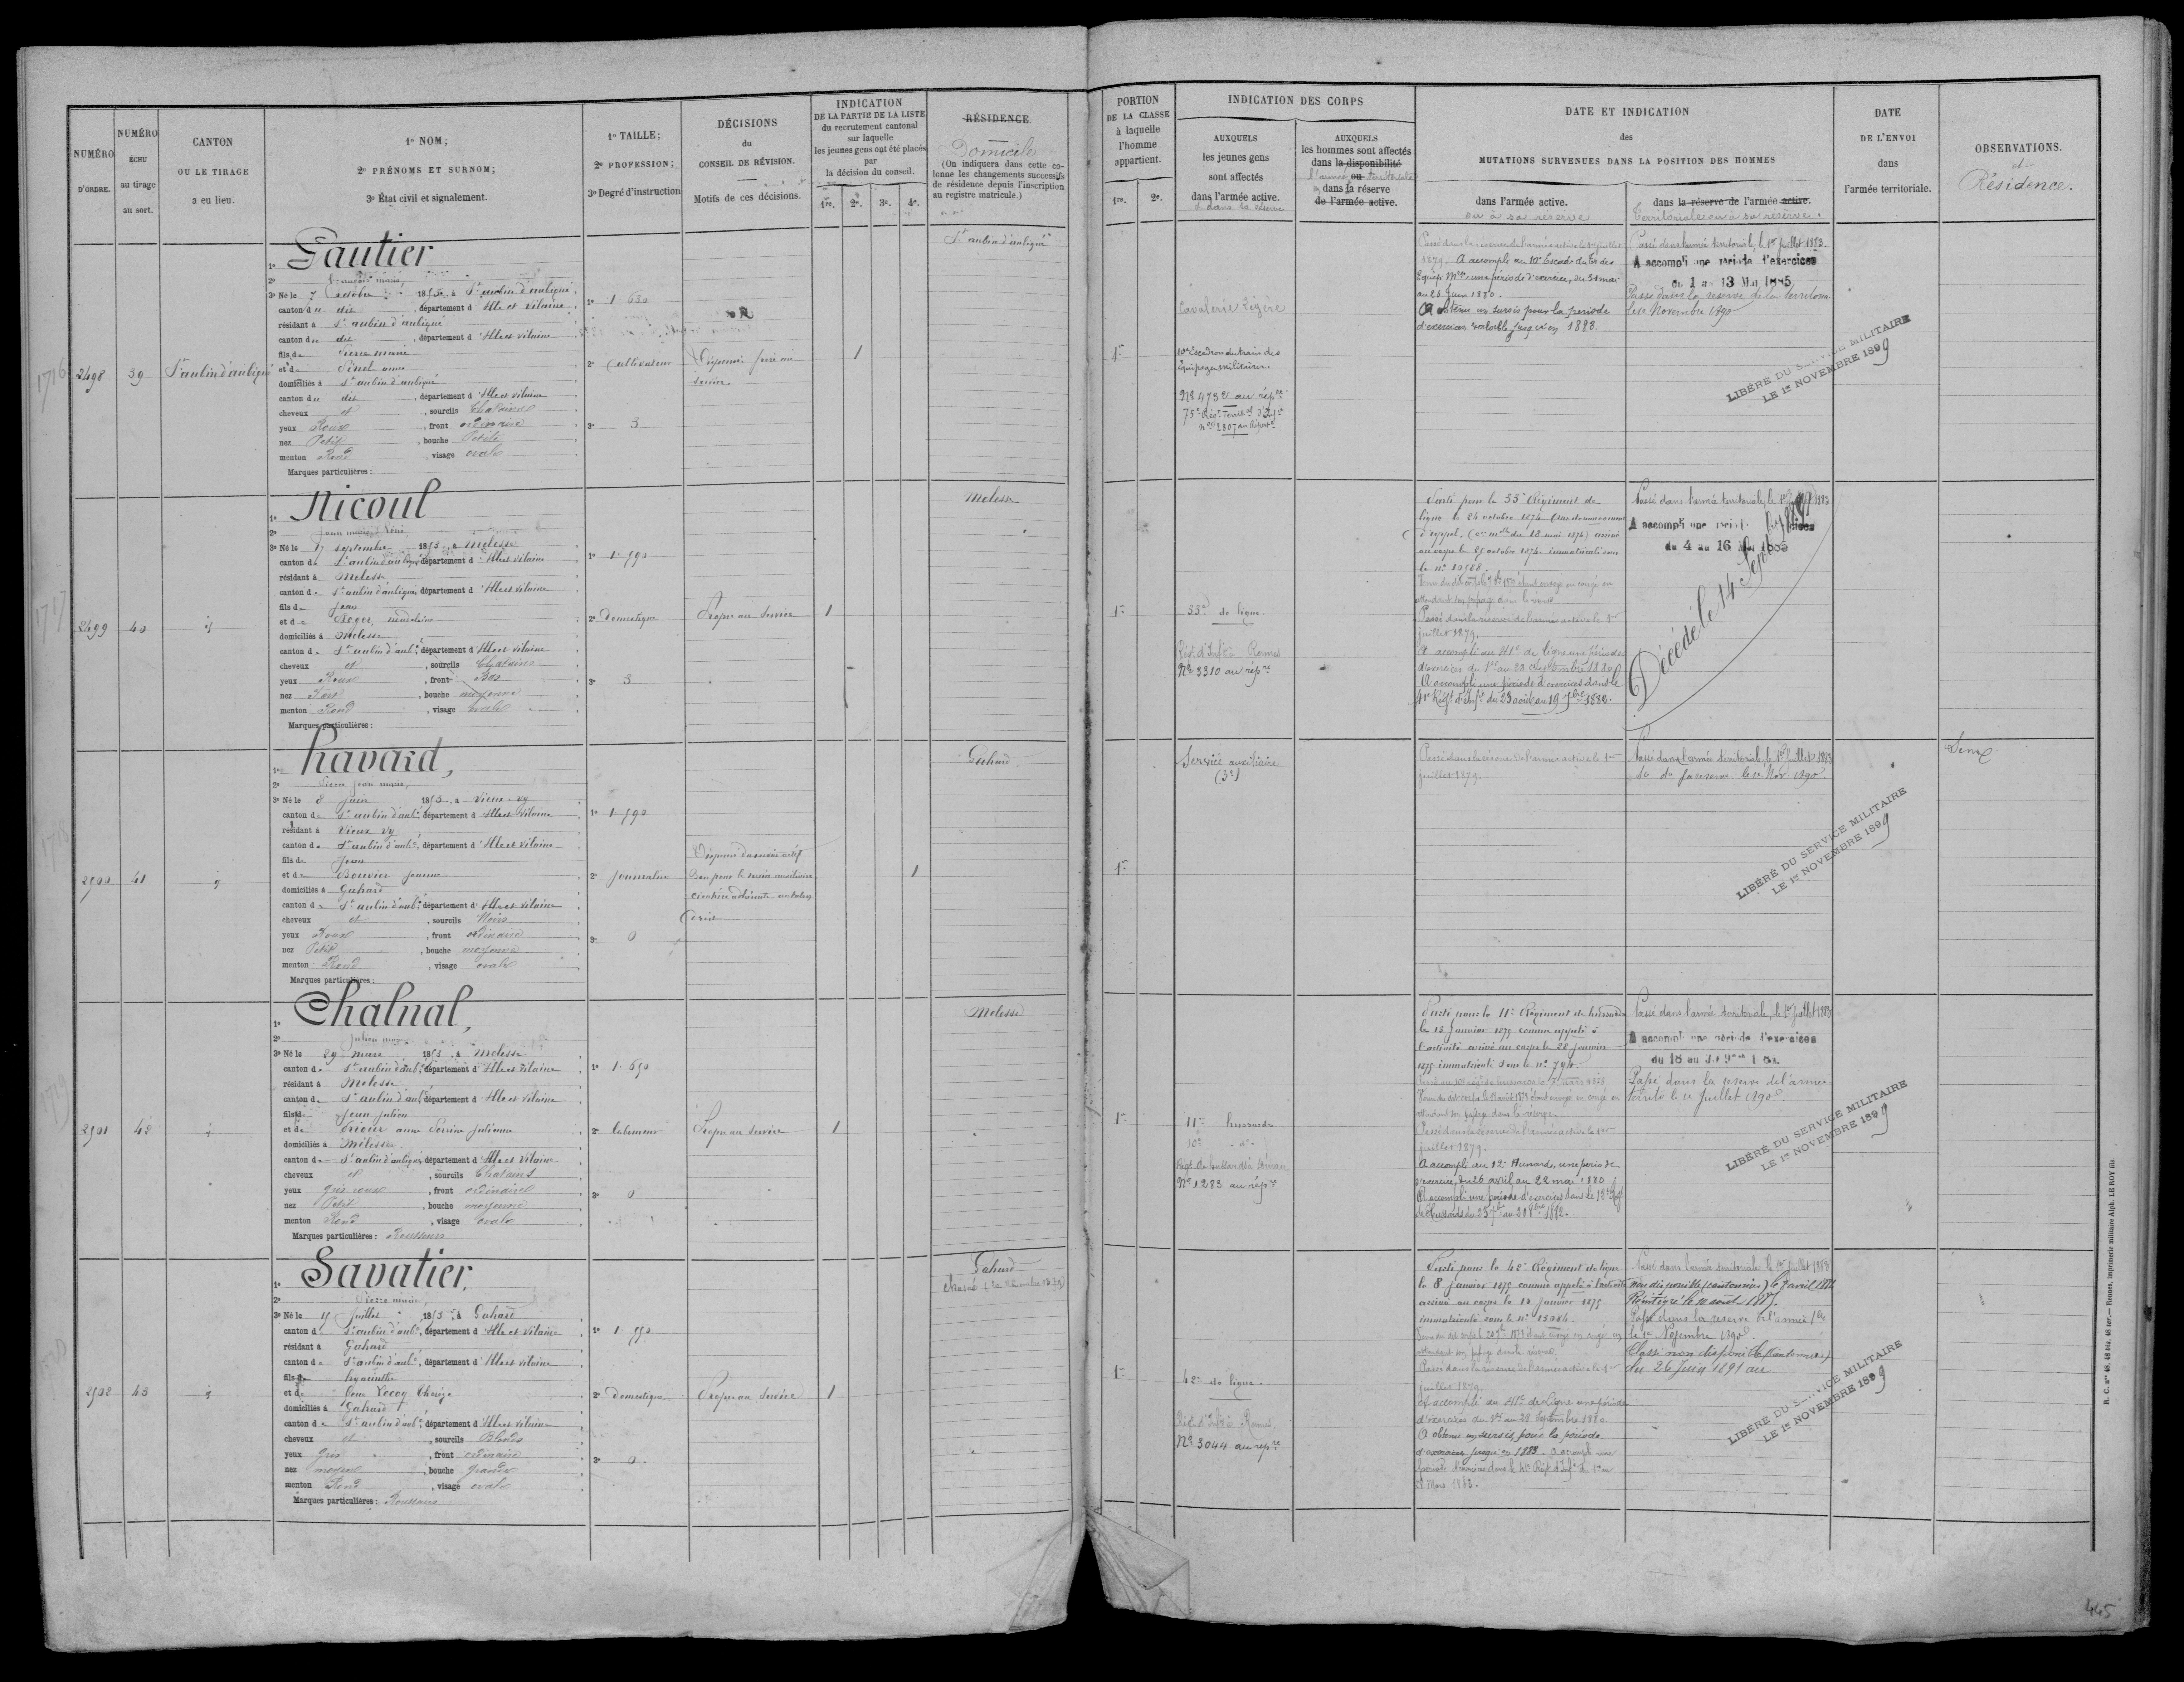 NUMÉRO D'ORDRE.
NUMÉRO ÉCHU au tirage au sort.
CANTON OU LE TIRAGE a eu lieu.
1º NOM;
2º PRÉNOMS ET SURNOM;
3º État civil et signalement.
1º TAILLE;
2º PROFESSION;
3º Degré d'instruction
DÉCISIONS
du
CONSEIL DE RÉVISION.
Motifs de ces décisions.
INDICATION
DE LA PARTIE DE LA LISTE
du recrutement cantonal
sur laquelle
les jeunes gens ont été placés
par
la décision du conseil.
1re. 2e. 3e. 4e.
RÉSIDENCE
Domicile
(On indiquera dans cette co-
lonne les changements successifs
de résidence depuis l'inscription
au registre matricule.)
PORTION
DE LA CLASSE
à laquelle
l'homme
appartient.
1re. 2e.
INDICATION DES CORPS
AUXQUELS
les jeunes gens
sont affectés
dans l'armée active.
& dans la réserve
AUXQUELS
les hommes sont affectés
dans la disponibilité
l'armée ou territoriale
dans la réserve
de l'armée active.
DATE ET INDICATION
des
MUTATIONS SURVENUES DANS LA POSITION DES HOMMES
dans l'armée active.
ou à sa réserve
dans la réserve de l'armée active.
Territoriale ou à sa réserve.
DATE
DE L'ENVOI
dans
l'armée territoriale.
OBSERVATIONS.
et
Résidence.
1716
2498
39
St aubin d'aubigné
1º Gautier
2º François marie,
3º Né le 7 octobre 1853, à St aubin d'aubigné
canton du dit, département d'Ille et Vilaine
résidant à St aubin d'aubigné
canton du dit, département d'Ille et Vilaine
fils de Pierre marie
et de Pinel anne
domiciliés à St aubin d'aubigné
canton du dit, département d'Ille et Vilaine
cheveux et, sourcils Chatains
yeux Roux, front ordinaire
nez Petit, bouche Petite
menton Rond, visage ovale
Marques particulières:
1º 1.630
2º Cultivateur
3º 3
R
Dispensé frère au
service.
1
St aubin d'aubigné
1re
Cavalerie légère
10e Escadron du train des
équipages militaires.
Nº 4732 au répre
75e Régt Territal d'Infie
nº 2807 au Répertre
Passé dans la réserve de l'armée active le 1er juillet
1879. A accompli au 10e Escadn du Tr des
Equip. Mres une période d'exercice, du 31 mai
au 28 Juin 1880.
A obtenu un sursis pour la période
d'exercices valable jusqu'en 1883.
Passé dans l'armée territoriale, le 1er juillet 1883.
A accompli une période d'exercices
du 1 au 13 Mai 1885
Passé dans la réserve de la territoriale
le 1er Novembre 1890
LIBÉRÉ DU SERVICE MILITAIRE
LE 1er NOVEMBRE 1899
1717
2499
40
id
1º Nicoul
2º Jean marie René
3º Né le 17 septembre 1853, à Melesse
canton de St aubin d'aubigné, département d'Ille et Vilaine
résidant à Melesse
canton de St aubin d'aubigné, département d'Ille et Vilaine
fils de Jean
et de Roger, madeleine
domiciliés à Melesse
canton de St aubin d'aubé, département d'Ille et Vilaine
cheveux et, sourcils Chatains
yeux Roux, front Bas
nez Fort, bouche moyenne
menton Rond, visage ovale
Marques particulières:
1º 1.590
2º Domestique
3º 3
Propre au Service
1
Melesse
1re
33e de ligne.
Régt d'Infie à Rennes
Nº 3310 au répre
Parti pour le 33e Régiment de
ligne le 24 octobre 1874
d'appel (on mlle du 18 mai 1874) arrivé
au corps le 27 octobre 1874 immatriculé sous
le nº 10588.
attendant son passage dans la réserve
Passé dans la réserve de l'armée active le 1er
juillet 1879.
A accompli au 41e de ligne une période
d'exercices du 1er au 28 Septembre 1880
A accompli une période d'exercices dans le
41e Régt d'Infie du 23 août au 19 7bre 1882.
Passé dans l'armée territoriale, le 1er juillet 1883
A accompli une période d'exercices
du 4 au 16 Mai 1885
Décédé le 14 Septbre 1889
1718
2500
41
id
1º Havard,
2º Pierre Jean marie,
3º Né le 8 Juin 1853, à Vieux-vy
canton de St aubin d'aubé, département d'Ille et Vilaine
résidant à Vieux Vy
canton de St aubin d'aubé, département d'Ille et Vilaine
fils de Jean
et de Bouvier Jeanne
domiciliés à Gahard
canton de St aubin d'aubé, département d'Ille et Vilaine
cheveux et, sourcils Noirs
yeux Roux, front ordinaire
nez Petit, bouche moyenne
menton Rond, visage ovale
Marques particulières:
1º 1.590
2º Journalier
3º 0
Dispensé du service actif
Bon pour le service auxiliaire
cicatrice adhérente au talon
1
Gahard
1re
Service auxiliaire
(3e)
Passé dans la réserve de l'armée active le 1er
juillet 1879.
Passé dans l'armée territoriale, le 1er Juillet 1883
do do sa réserve le 1er Nov 1890
LIBÉRÉ DU SERVICE MILITAIRE
LE 1er NOVEMBRE 1899
1719
2501
42
id
1º Chalnal,
2º Julien marie
3º Né le 29 mars 1853, à Melesse
canton de St aubin d'aubé, département d'Ille et Vilaine
résidant à Melesse
canton de St aubin d'aubé, département d'Ille et Vilaine
fils de Jean Julien
et de Cricier anne Perrine Julienne
domiciliés à Melesse
canton de St aubin d'aubigné, département d'Ille et Vilaine
cheveux et, sourcils Chatains
yeux gris roux, front ordinaire
nez Petit, bouche moyenne
menton Rond, visage ovale
Marques particulières: Rousseurs
1º 1.650
2º laboureur
3º 0
Propre au Service
1
Melesse
1re
11e hussards.
10e do
Régt de hussards à Dinan
Nº 1283 au répre
Parti pour le 11e Régiment de hussards
le 18 Janvier 1875 comme appelé à
l'activité arrivé au corps le 22 Janvier
1875 immatriculé sous le nº 794.
attendant son passage dans la réserve.
Passé dans la réserve de l'armée active le 1er
juillet 1879.
A accompli au 12e Hussards, une période
d'exercice, du 26 avril au 22 mai 1880
A accompli une période d'exercices dans le 13e Régt
de Hussards du 25 7bre au 21 8bre 1882.
Passé dans l'armée territoriale, le 1er Juillet 1883
A accompli une période d'exercices
Passé dans la réserve de l'armée
territle le 1er Juillet 1890
LIBÉRÉ DU SERVICE MILITAIRE
LE 1er NOVEMBRE 1899
2502
43
id
1º Savatier,
2º Pierre marie,
3º Né le 15 Juillet 1853, à Gahard
canton de St aubin d'aubé, département d'Ille et Vilaine
résidant à Gahard
canton de St aubin d'aubé, département d'Ille et Vilaine
fils de hyacinthe
et de Lecoq Thérèse
domiciliés à Gahard
canton de St aubin d'aubé, département d'Ille et Vilaine
cheveux et, sourcils Blonds
yeux gris, front ordinaire
nez moyen, bouche grande
menton Rond, visage ovale
Marques particulières: Rousseurs
1º 1.550
2º Domestique
3º 0
Propre au Service
1
Gahard
1re
42e de ligne.
Régt d'Infie à Rennes
Nº 3044 au répre
Parti pour le 42e Régiment de ligne
le 8 janvier 1875 comme appelé à l'activité
arrivé au corps le 12 Janvier 1875
immatriculé sous le nº 13084.
Passé dans la réserve de l'armée active le 1er
juillet 1879
A accompli au 41e de Ligne une période
d'exercices du 1er au 28 Septembre 1880.
A obtenu un sursis pour la période
d'exercices jusqu'en 1883. A accompli une
période d'exercices dans le 41e Régt d'Infie du 1er au
28 Mars 1883.
Passé dans l'armée territoriale, le 1er Juillet 1883
Non disponible (cantonnier) le 9 avril 1884
Réintégré le 10 août 1885.
Passé dans la réserve de l'armée tle
le 1er Novembre 1890
Classé non disponible (cantonnier)
du 26 Juin 1891 au
LIBÉRÉ DU SERVICE MILITAIRE
LE 1er NOVEMBRE 1899
R. C. nos 48, 48 bis, 48 ter. — Rennes, imprimerie militaire Alph. LE ROY fils
445